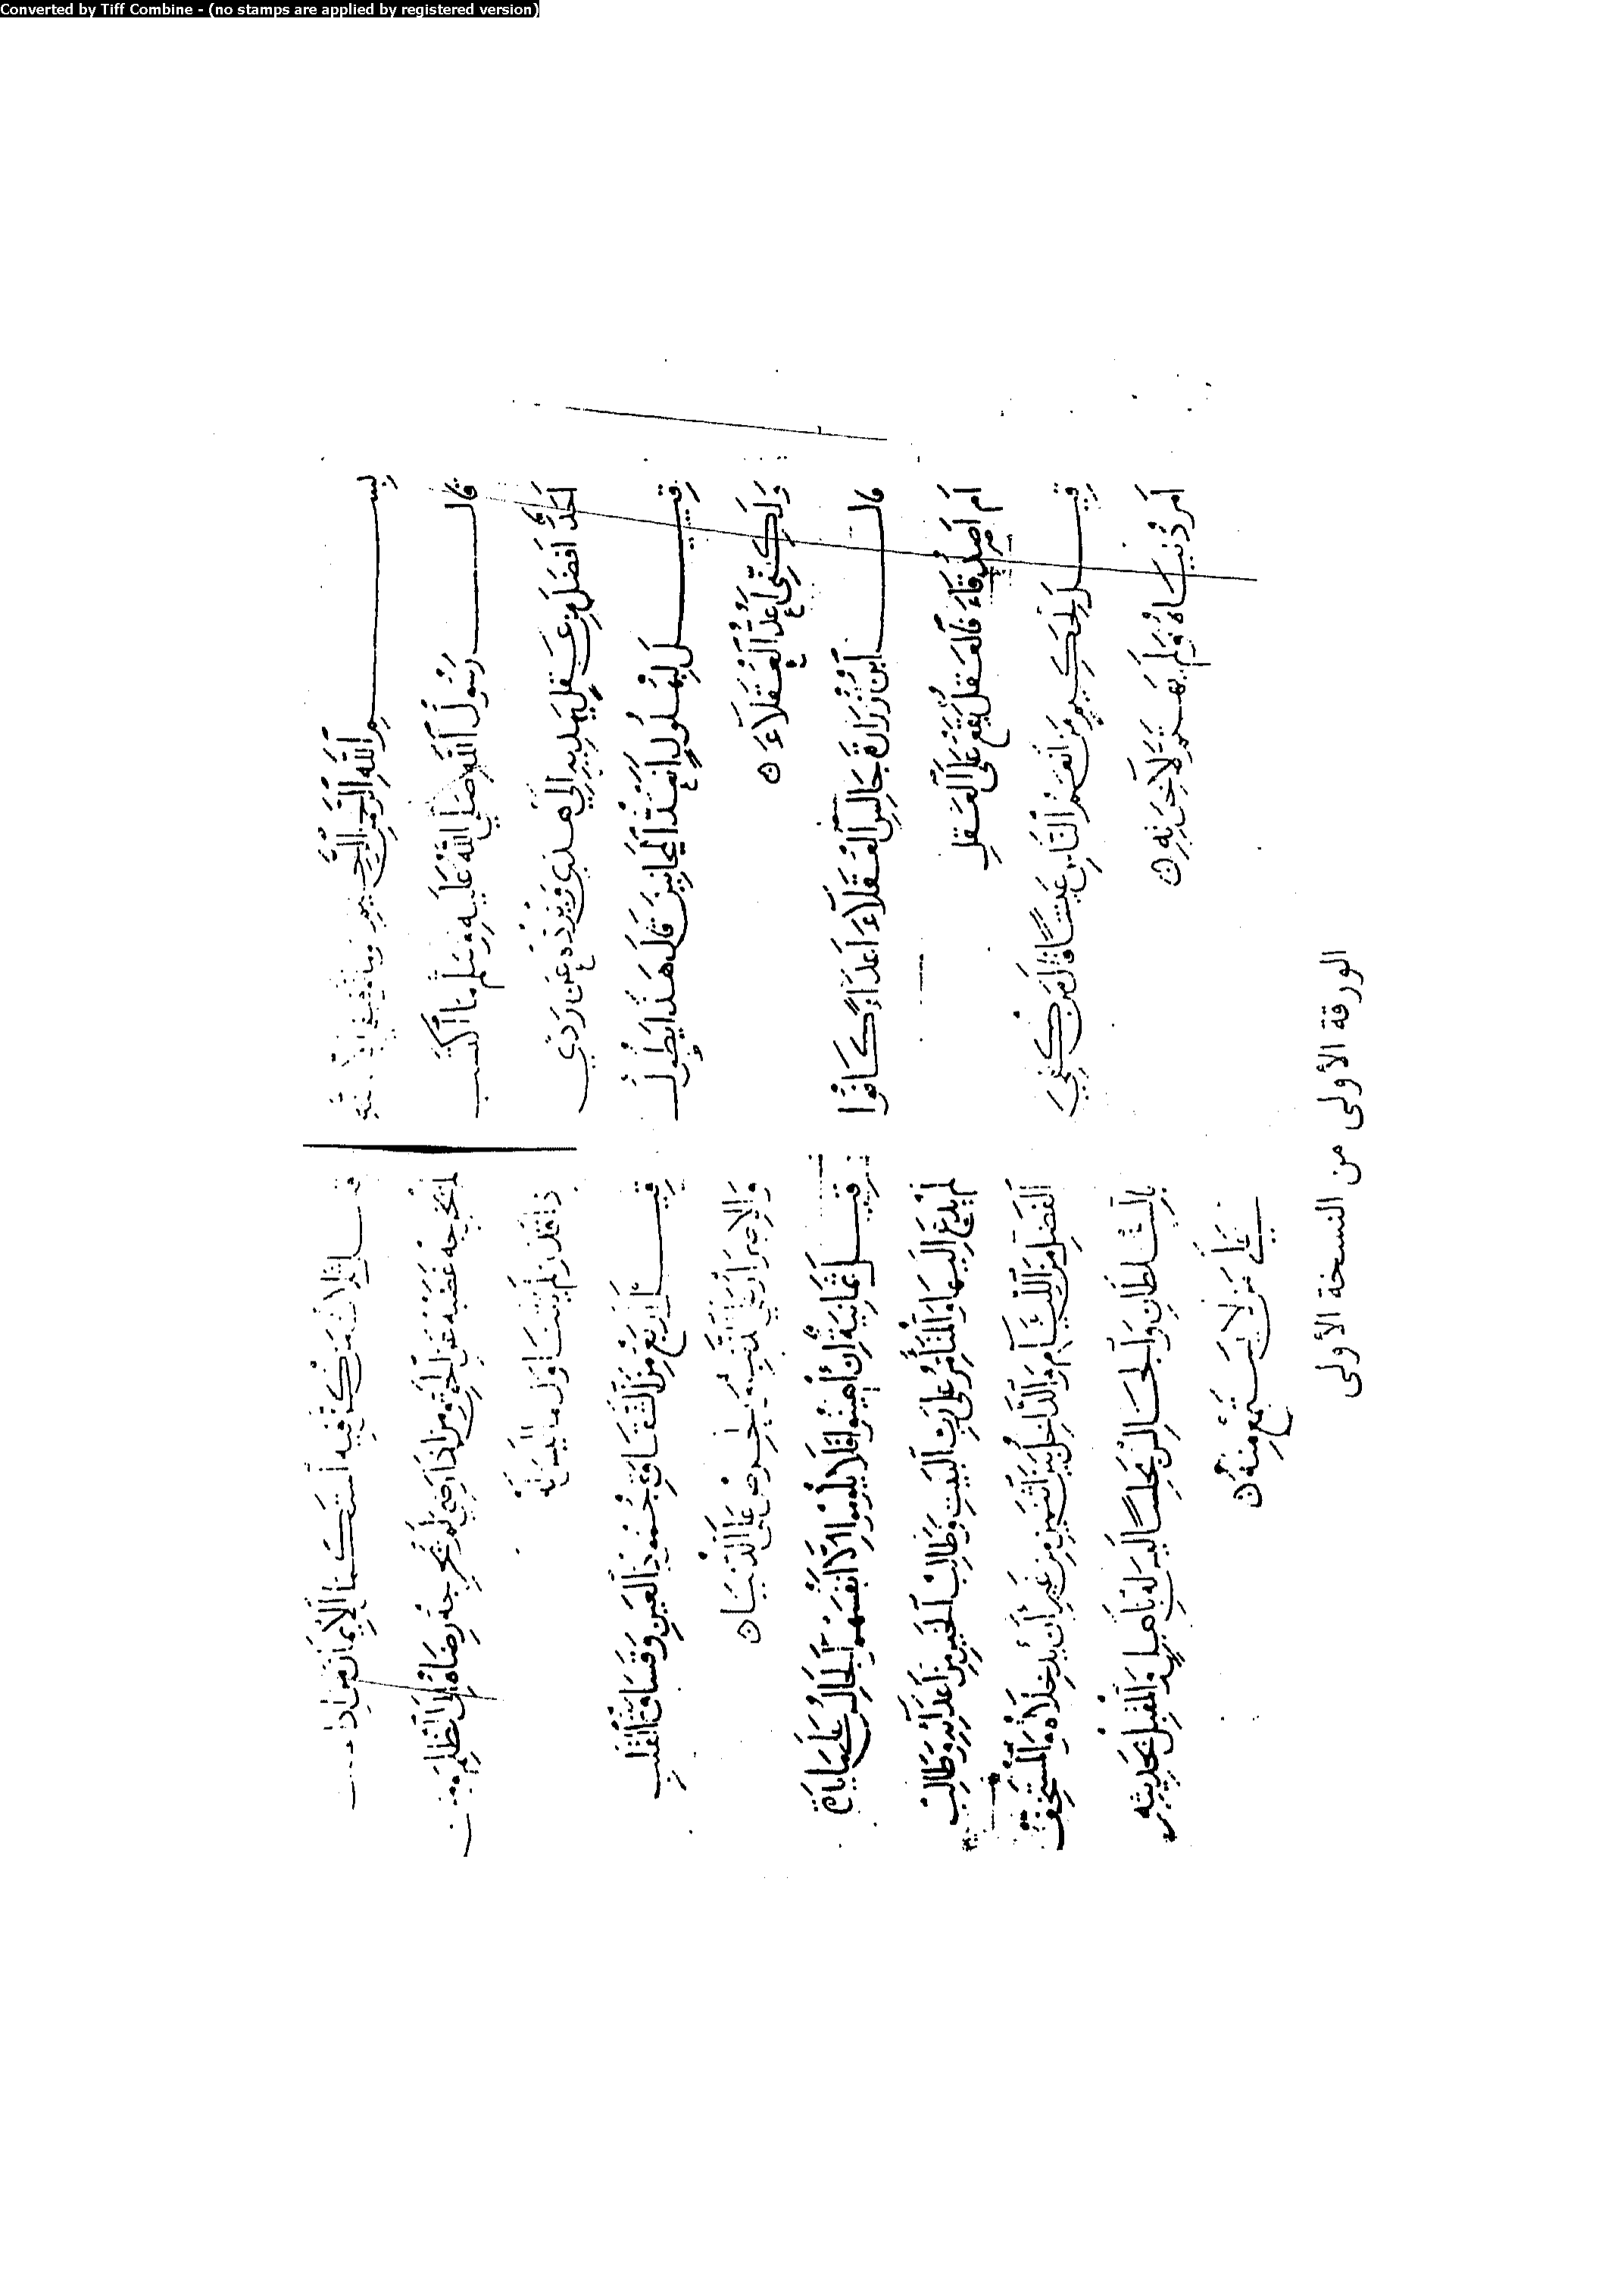 Converted by Tiff Combine - (no stamps are applied by registered version)
بِسْمِ اللَّهِ الرَّحْمَنِ الرَّحِيمِ وما توفيقي إلا
قَالَ رَسُولُ اللَّهِ صَلَّى اللَّهُ عَلَيْهِ وَسَلَّمَ مَا اكْتَسَبَ
أَحَدٌ أَفْضَلَ مِنْ عَقْلٍ يَهْدِيهِ إِلَى هُدًى وَيَرُدُّهُ عَنْ رَدًى
قِيلَ لِبُهْلُولٍ أَتَعُدُّ الْمَجَانِينَ قَالَ هَذَا يَطُولُ
وَلَكِنِّي أَعُدُّ الْعُقَلَاءَ ○
قَالَ ابْنُ زُرَارَةَ جَالِسِ الْعُقَلَاءَ أَعْدَاءً كَانُوا
أَمْ أَصْدِقَاءَ فَالْعَقْلُ يَقَعُ عَلَى الْعَقْلِ
قِيلَ لِحَكِيمٍ مَنْ أَنْعَمُ النَّاسِ عَيْشًا قَالَ مَنْ كُفِيَ
أَمْرَ دُنْيَاهُ وَلَمْ يَهْتَمَّ لِآخِرَتِهِ ○
ثلاث مَنْ كُنَّ فِيهِ اسْتَكْمَلَ الْإِيمَانَ مَنْ إذا
لم يُخْرِجْهُ غَضَبُهُ عَنِ الْحَقِّ وَمَنْ إِذَا رَضِيَ لَمْ يُخْرِجْهُ رِضَاهُ إِلَى الظُّلْمِ وَمَنْ
إذا قَدَرَ لَمْ يَتَنَاوَلْ مَا لَيْسَ لَهُ
قِيلَ أَرْبَعٌ مِنَ الشَّقَاوَةِ جُمُودُ الْعَيْنِ وَقَسَاوَةُ الْقَلْبِ
وَالْإِصْرَارُ عَلَى الذَّنْبِ وَالْحِرْصُ عَلَى الدُّنْيَا ○
قِيلَ ثَمَانِيَةٌ إِنْ أُهِينُوا فَلَا يَلُومُوا إِلَّا أَنْفُسَهُمُ الْجَالِسُ عَلَى مَائِدَةٍ
لَمْ يُدْعَ إِلَيْهَا وَالْمُتَأَمِّرُ عَلَى رَبِّ الْبَيْتِ وَطَالِبُ الْخَيْرِ مِنْ أَعْدَائِهِ وَطَالِبُ
الْفَضْلِ مِنَ اللِّئَامِ وَالدَّاخِلُ بَيْنَ اثْنَيْنِ مِنْ غَيْرِ أَنْ يُدْخِلَاهُ وَالْمُسْتَخِفُّ
بِالسُّلْطَانِ وَالْجَالِسُ مَجْلِسًا لَيْسَ لَهُ بِأَهْلٍ وَالْمُقْبِلُ بِحَدِيثِهِ
عَلَى مَنْ لَا يَسْتَمِعُ مِنْهُ ○
الورقة الأولى من النسخة الأولى